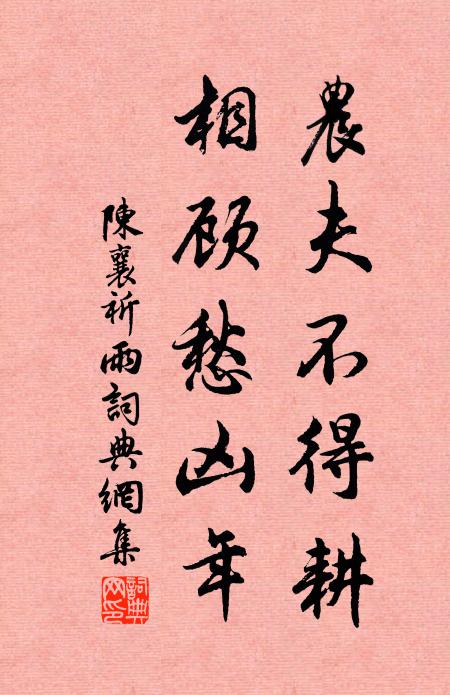 農夫不得耕
相顾愁凶年
陳襄祈雨詞典網集
詞典
网印